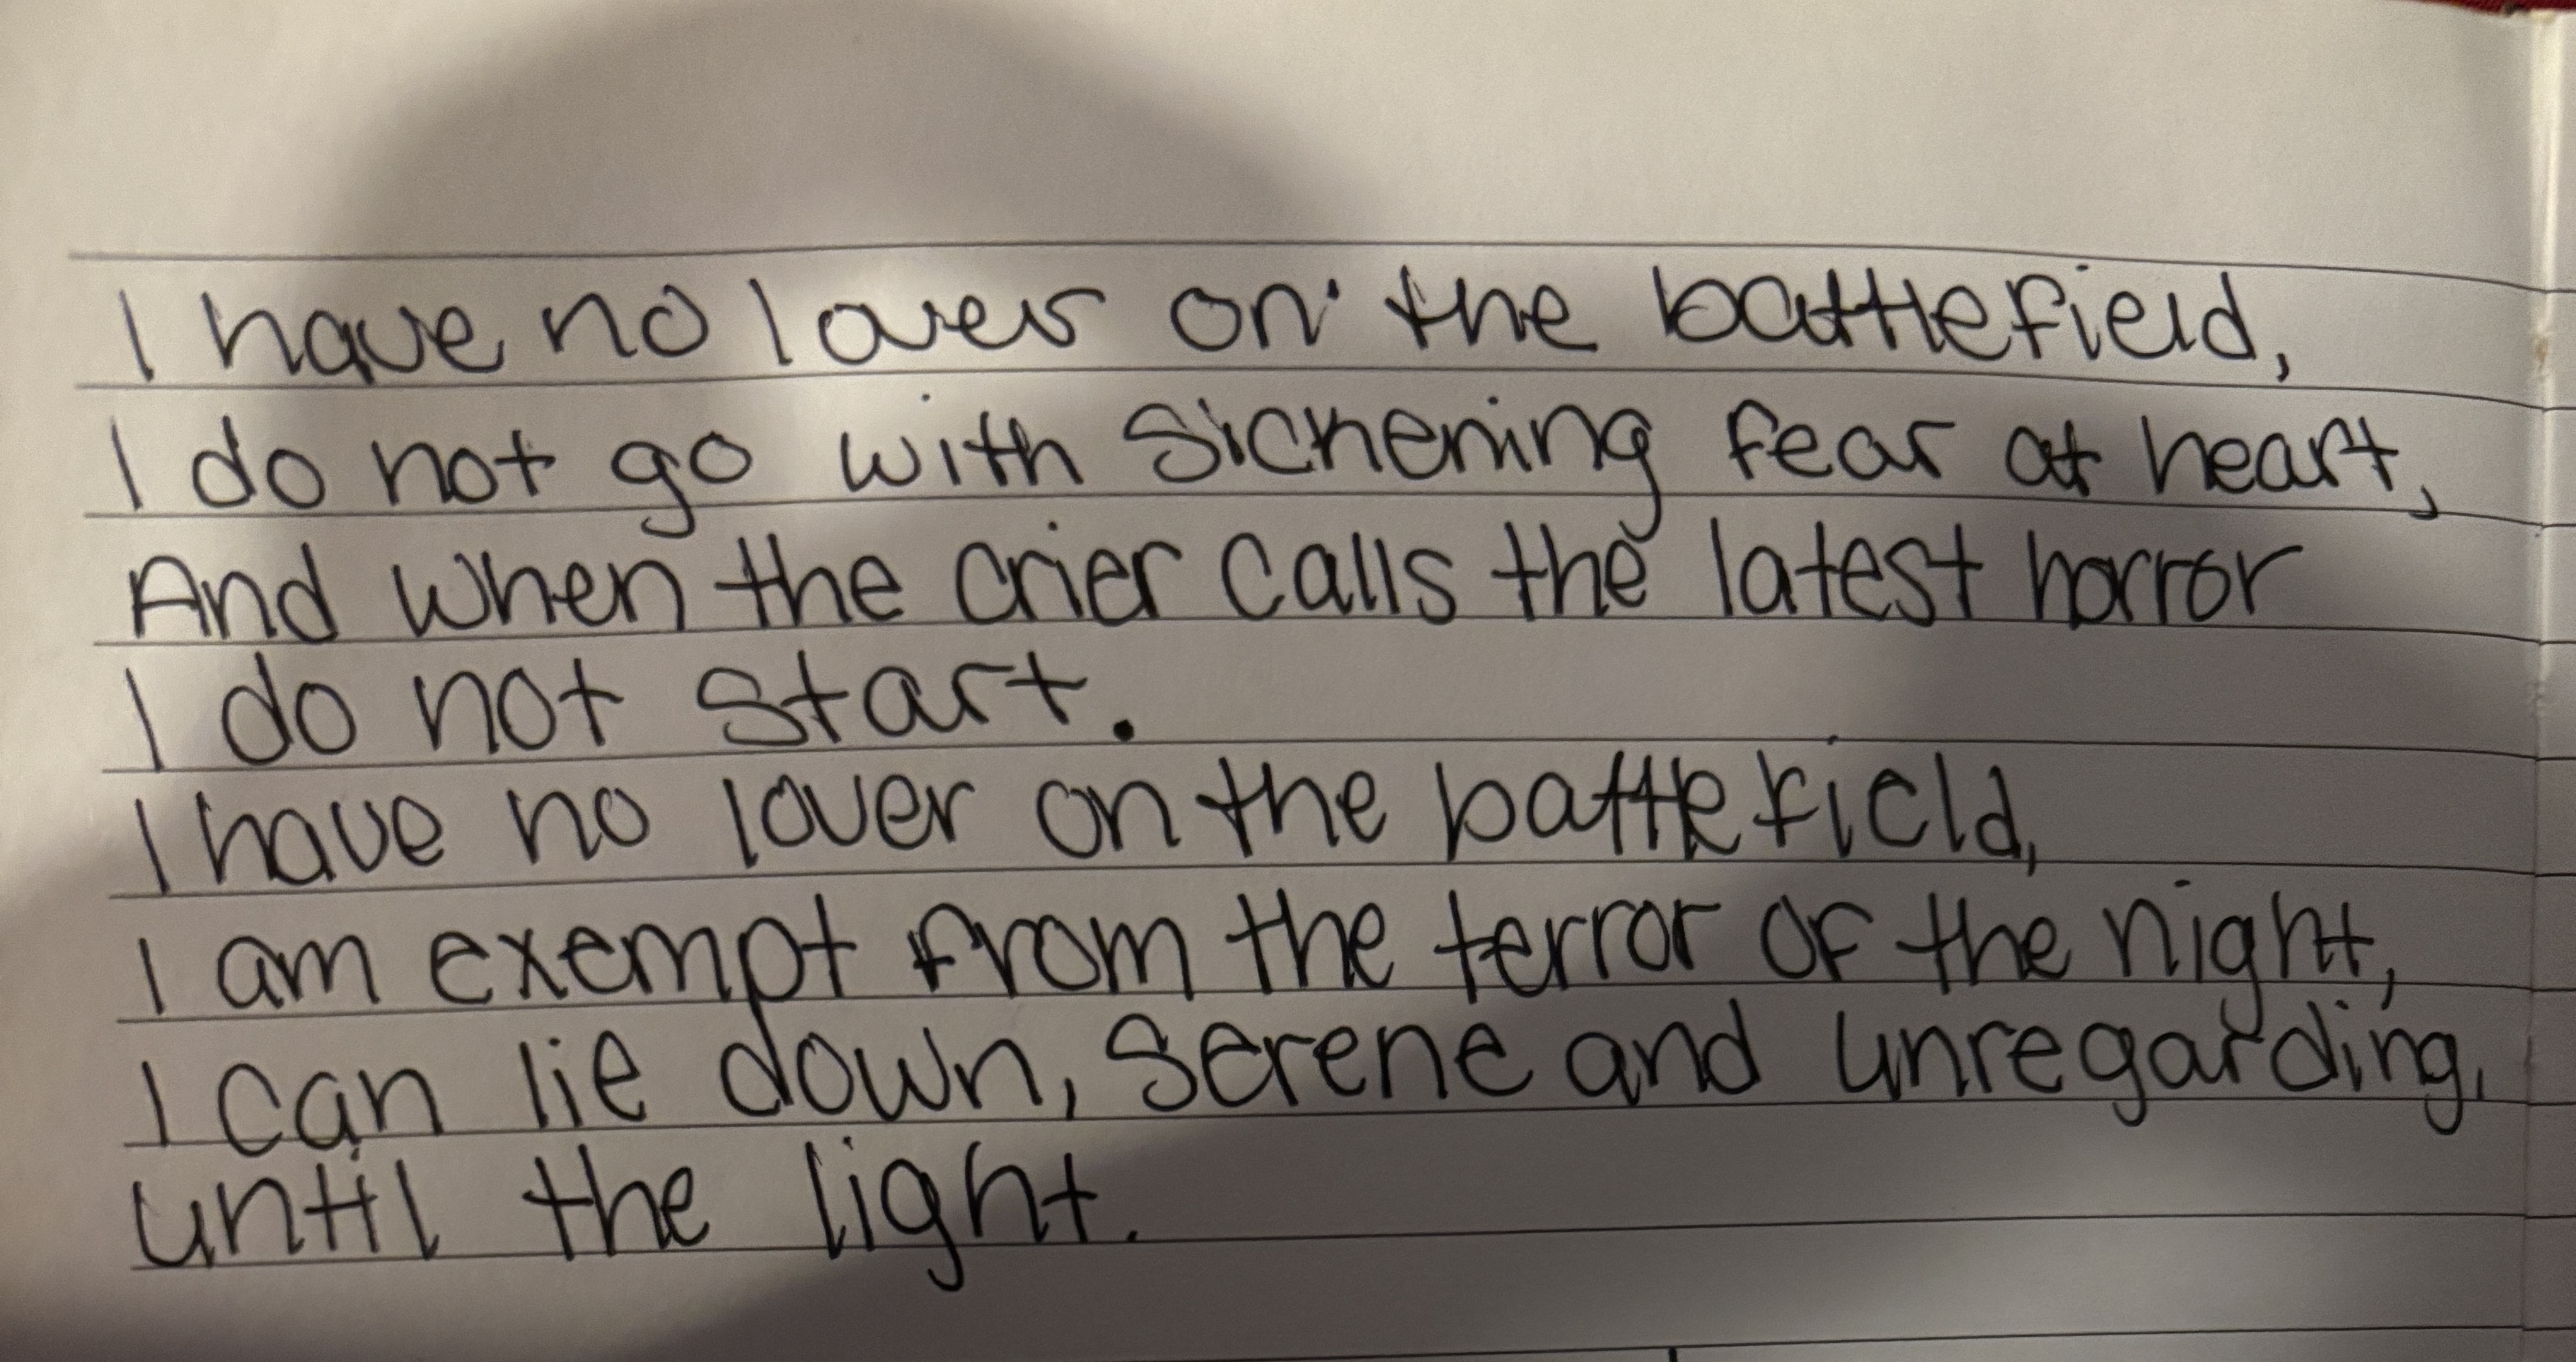 I have no lover on the battlefield,
I do not go with sickening fear at heart,
And when the crier calls the latest horror
I do not start.
I have no lover on the battlefield,
I am exempt from the terror of the night,
I can lie down, serene and unregarding,
until the light.